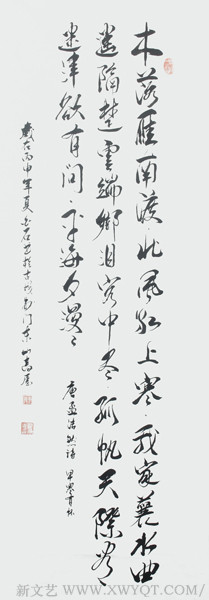 木落雁南渡北風江上寒我家襄水曲
遥隔楚雲端鄉淚客中尽孤帆天際看
迷津欲有問平海夕漫々
唐孟浩然詩早寒有怀
歲在丙申年夏
新文艺 WWW.XWYQT.COM